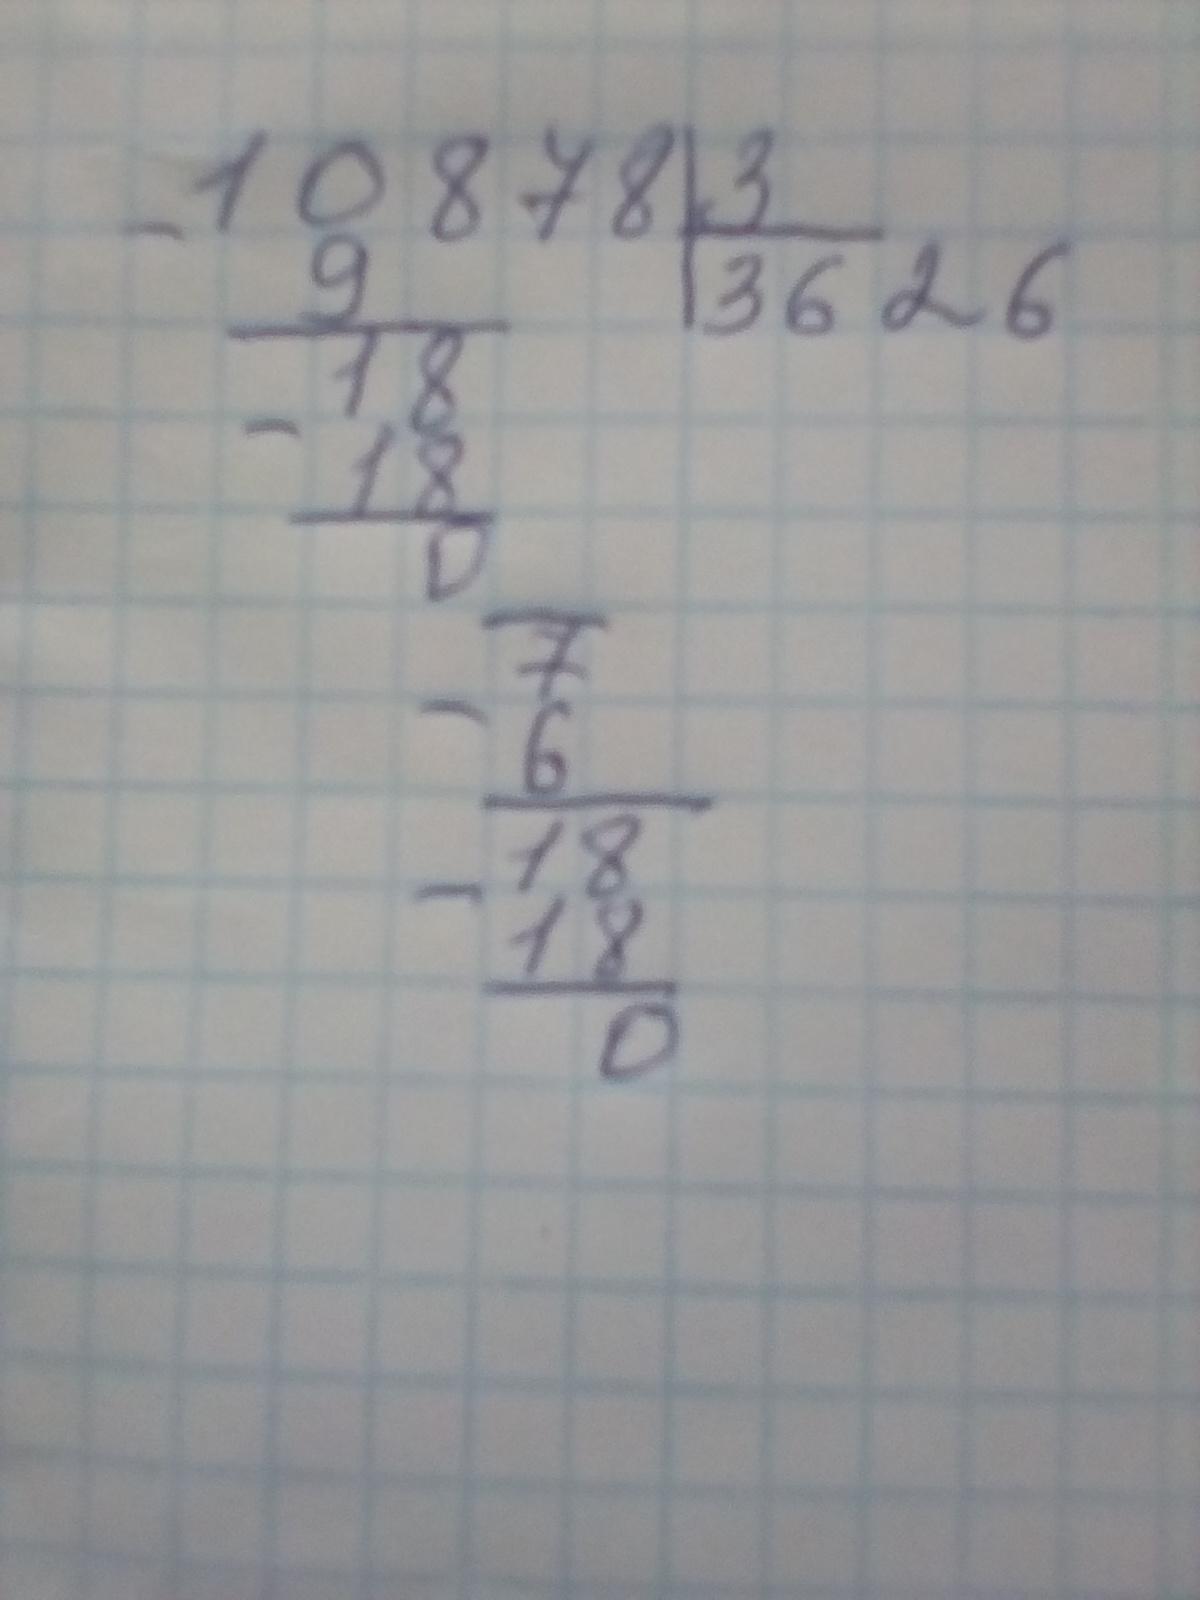 - 10878 | 3
9 | 3626
18
- 18
0
7
- 6
18
- 18
0